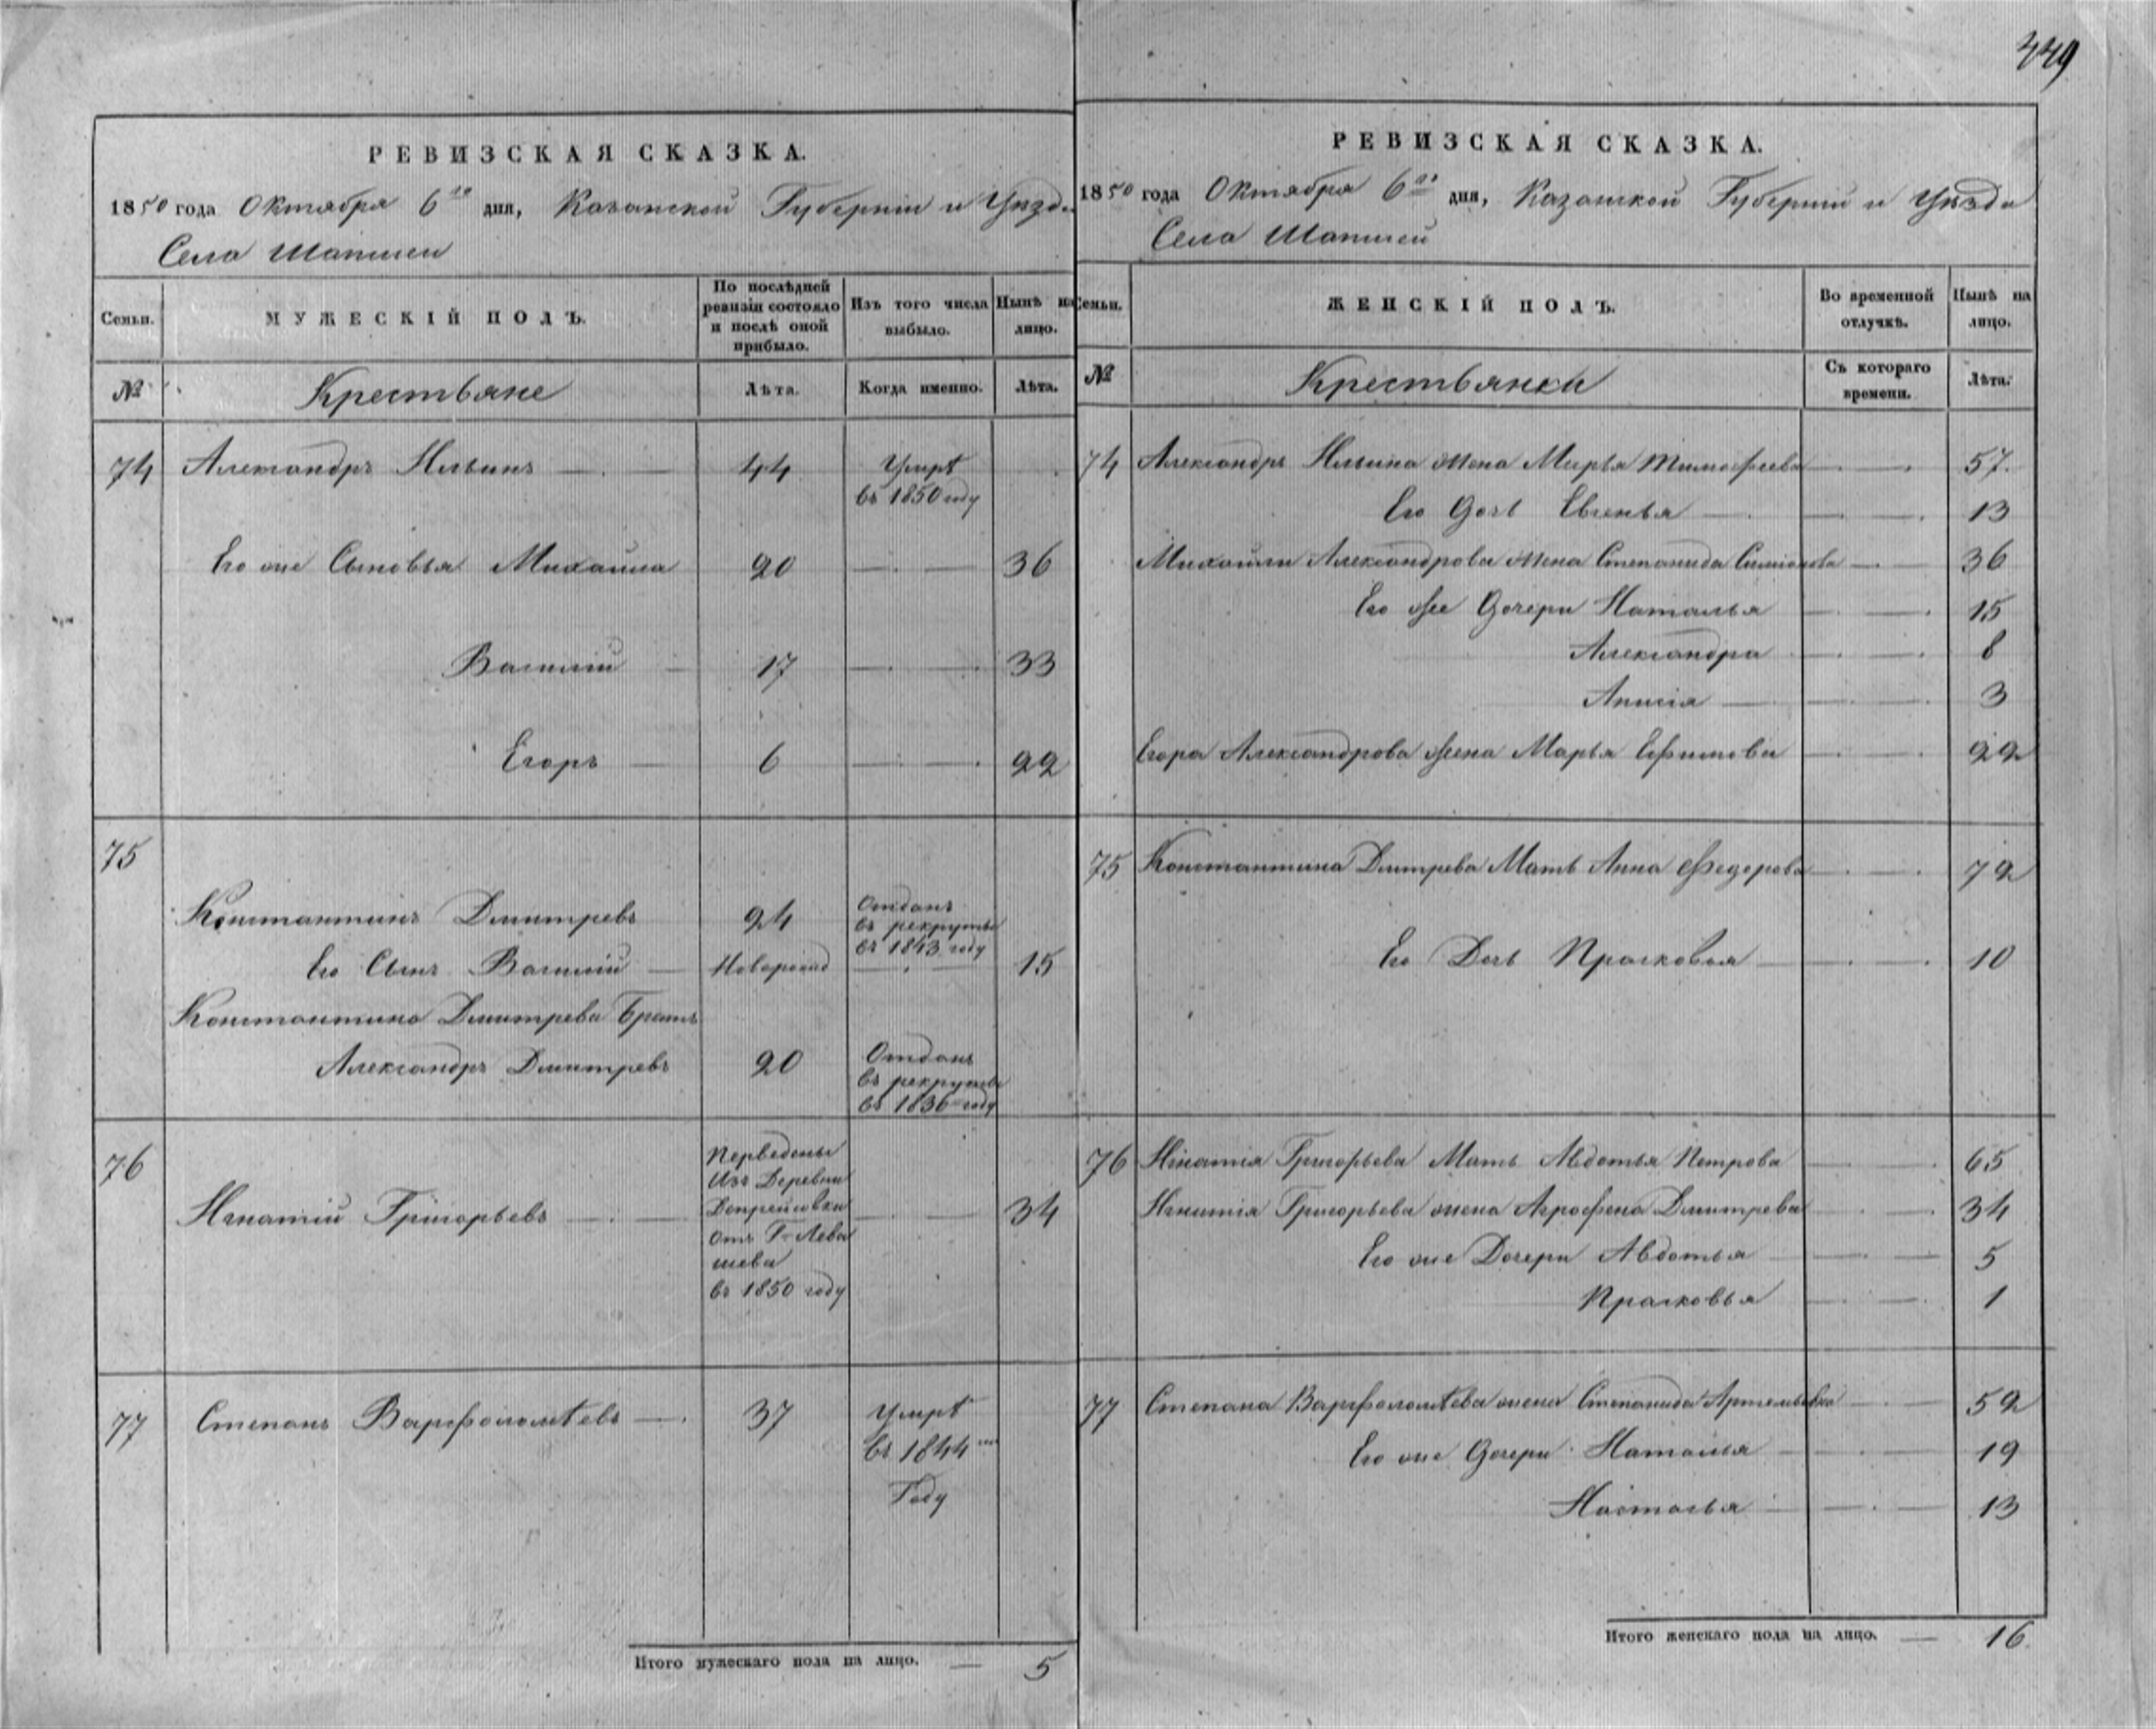 449
РЕВИЗСКАЯ СКАЗКА.
1850 года Октября 6го дня, Казанской Губерніи и Уѣзда
Села Шапшеи
Семьи. МУЖЕСКІЙ ПОЛЪ. По послѣдней ревизіи состояло и послѣ оной прибыло. Изъ того числа выбыло. Нынѣ на лицо.
№ Крестьяне Лѣта. Когда именно. Лѣта.
74 Александръ Ильинъ — 44 Умрѣ
въ 1850 году
Его же Сыновья Михайла 20 — 36
Василій — 17 — 33
Егоръ — 6 — 22
75
Константинъ Дмитревъ 24 Отданъ
въ рекруты
въ 1843 году
Его Сынъ Василій — Новорожд — 15
Константина Дмитрева Братъ
Александръ Дмитревъ 20 Отданъ
въ рекруты
въ 1836 году
76 Переведены
Изъ Деревни
Игнатій Григорьевъ — — 34
отъ Г. Лева
шева
въ 1850 году
77 Степанъ Варфоломѣевъ — 37 Умрѣ
въ 1844 мъ
Году
Итого мужескаго пола на лицо. — 5
РЕВИЗСКАЯ СКАЗКА.
1850 года Октября 6го дня, Казанской Губерніи и Уѣзда
Села Шапшей
Семьи. ЖЕНСКІЙ ПОЛЪ. Во временной отлучкѣ. Нынѣ на лицо.
№ Крестьянки Съ котораго времени. Лѣта.
74 Александръ Ильина жена Марья Тимофеева — 57.
Его Дочь Евгенья — 13
Михайлы Александрова жена Степанида Симіонова — 36
Его же Дочери Наталья — 15
Александра — 8
Анисія — 3
Егора Александрова жена Марья Ефимова — 22
75 Константина Дмитрева Мать Анна Федерова — 72
Его Дочь Прасковья — 10
76 Игнатія Григорьева Мать Авдотья Петрова — 65
Игнатія Григорьева жена Агрофена Дмитрева — 34
Его же Дочери Авдотья — 5
Прасковья — 1
77 Степана Варфоломѣева жена Степанида Артемьевна — 52
Его же Дочери Наталья — 19
Настасья — 13
Итого женскаго пола на лицо. — 16